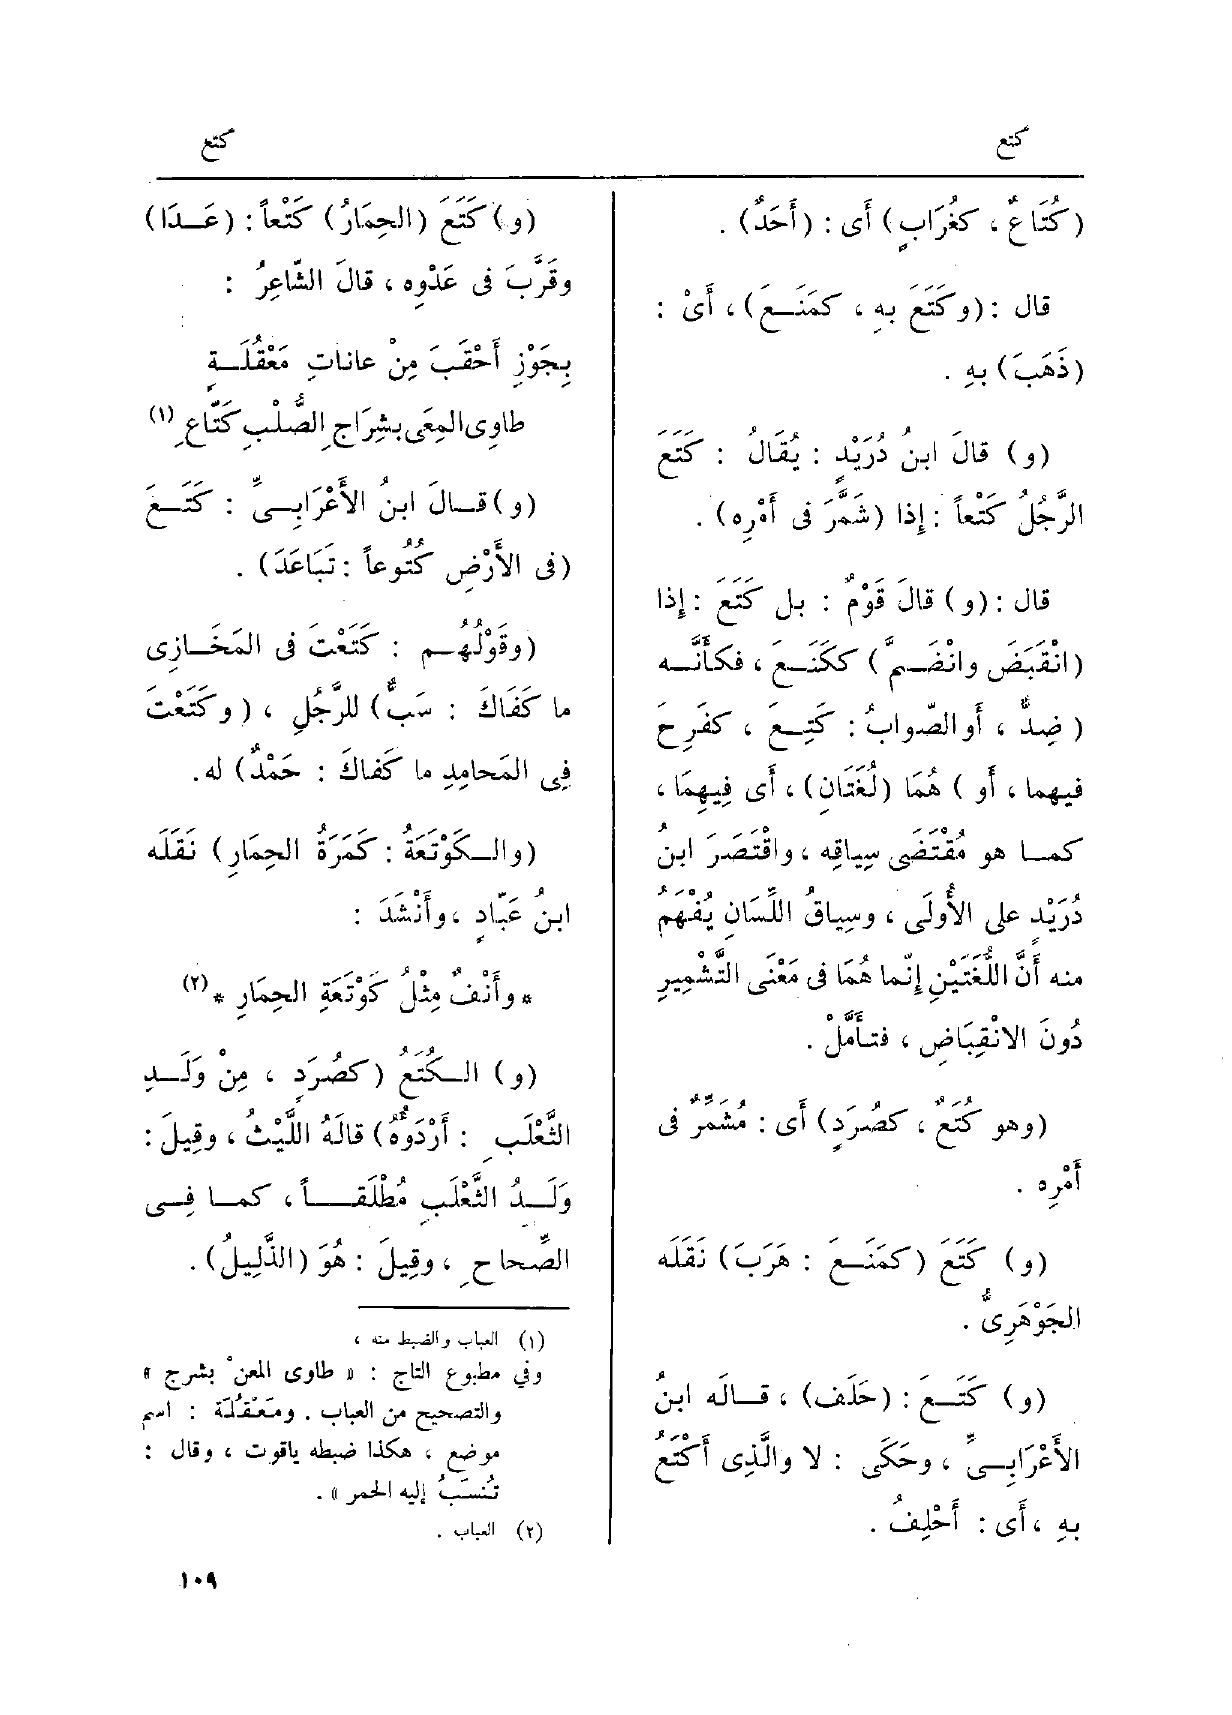 كتع
كتع
(كُتَاعٌ ، كغُرَابٍ) أَى : (أَحَدٌ) .
قال : (وكَتَعَ بِهِ ، كمَنَـعَ) ، أَىْ :
(ذَهَبَ) بِهِ .
(و) قالَ ابنُ دُرَيْدٍ : يُقَالُ : كَتَعَ
الرَّجُلُ كَتْعاً : إِذا (شَمَّرَ فى أَمْرِه) .
قال : (و) قالَ قَوْمٌ : بل كَتَعَ : إِذا
(انْقَبَض وانْضَـمَّ) ككَنَـعَ ، فكأَنَّـه
( ضِدٌّ ، أَو الصّوابُ : كَتِـعَ ، كفَرِحَ
فيهما ، أَو ) هُمَا (لُغَتَانِ) ، أَى فِيهِمَا ،
كمـا هو مُقْتَضَى سِياقِه ، واقْتَصَرَ ابنُ
دُرَيْدٍ على الأُولَى ، وسِياقُ اللِّسَانِ يُفْهِمُ
منه أَنَّ اللُّغَتَيْنِ إِنَّما هُمَا فى مَعْنَى التَّشْمِيرِ
دُونَ الانْقِبَاضِ ، فتأَمَّلْ .
(وهو كُتَعٌ ، كصُرَدٍ) أَى : مُشَمِّرٌ فى
أَمْرِه .
(و) كَتَعَ (كمَنَـعَ : هَرَبَ) نَقَلَه
الجَوْهَرِىُّ .
(و) كَتَـعَ : (حَلَف) ، قـالَه ابنُ
الأَعْرَابِـىِّ ، وحَكَى : لا والَّذِى أَكْتَعُ
بِهِ ، أَى : أَحْلِفُ .
(و) كَتَعَ (الحِمَارُ) كَتْعاً : (عَـدَا)
وقَرَّبَ فى عَدْوِه ، قالَ الشّاعِرُ :
بِجَوْزِ أَحْقَبَ مِنْ عاناتِ مَعْقُلَـةٍ
طاوِى المِعَى بشِرَاجِ الصُّلْبِ كَتّاعِ (١)
(و) قـالَ ابنُ الأَعْرَابِـىِّ : كَتَـعَ
(فى الأَرْضِ كُتُوعاً : تَبَاعَدَ) .
(وقَوْلُهُـم : كَتَعْتَ فى المَخَـازِى
ما كَفَاكَ : سَبٌّ) للرَّجُلِ ، (وكَتَعْتَ
فِى المَحامِدِ ما كَفاكَ : حَمْدٌ) له .
(والـكَوْتَعَةُ : كَمَرَةُ الحِمَارِ) نَقَلَه
ابنُ عَبّادٍ ، وأَنْشَدَ :
* وأَنْفٌ مِثْلُ كَوْتَعَةِ الحِمَارِ * (٢)
(و) الـكُتَعُ (كصُرَدٍ ، مِنْ وَلَـدِ
الثَّعْلَبِ : أَرْدَؤُهُ) قالَهُ اللَّيْثُ ، وقِيلَ :
وَلَـدُ الثَّعْلَبِ مُطْلَقـاً ، كمـا فِـى
الصِّحاحِ ، وقِيلَ : هُوَ (الذَّلِيلُ) .
(١) العباب والضبط منه ،
وفي مطبوع التاج : « طاوى المعن بشرج »
والتصحيح من العباب . ومَعْقُلَة : اسم
موضع ، هكذا ضبطه ياقوت ، وقال :
تُنسَبُ إليه الحمر » .
(٢) العباب .
١٠٩